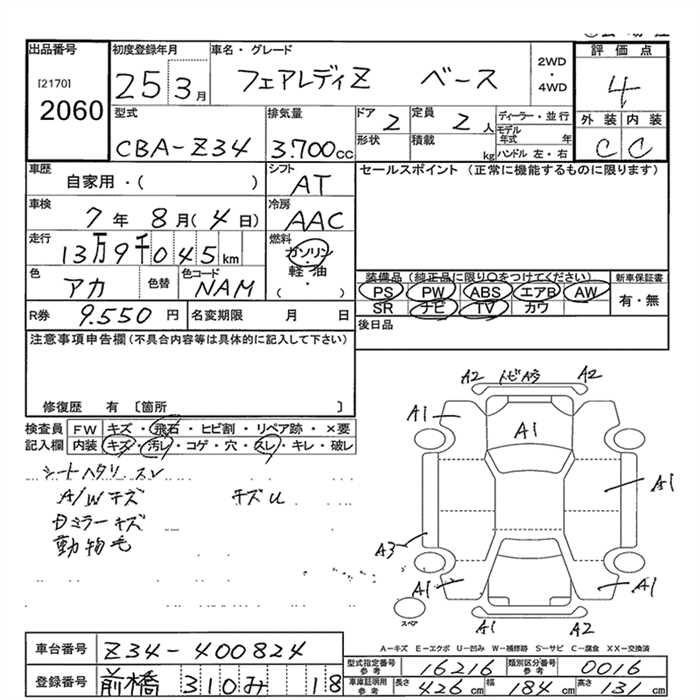 出品番号 初度登録年月 車名・グレード 2WD・4WD 評価点
[2170] 2060 25 3月 フェアレディZ ベース 4
型式 排気量 ドア 2 定員 2人 ディーラー・並行 外装 内装
CBA-Z34 3.700cc 形状 積載 kg モデル年式 年 ハンドル 左・右 C C
車歴 自家用・( ) シフト AT セールスポイント (正常に機能するものに限ります)
車検 7年 8月(4日) 冷房 AAC
走行 13万9千045km 燃料 ガソリン・軽・油・( )
色 アカ 色替 色コード NAM 装備品(純正品に限り○をつけてください) 新車保証書
PS PW ABS エアB AW 有・無
SR ナビ TV カワ
R券 9.550円 名変期限 月 日 後日品
注意事項申告欄(不具合内容等は具体的に記入して下さい)
修復歴 有 〔箇所 〕
検査員記入欄 FW キズ・飛石・ヒビ割・リペア跡・×要
内装 キズ・汚レ・コゲ・穴・スレ・キレ・破レ
シートヘタリ スレ
A/Wキズ キズU
Dミラーキズ
動物毛
A2 トビ A2
A1 A1
A1
A3
A1 A1
スペア A1 A2
A-キズ E-エクボ U-凹み W-補修跡 S-サビ C-腐食 XX-交換済
車台番号 Z34-400824
型式指定番号 参考 16216 類別区分番号 参考 0016
登録番号 前橋 310 み 18
車庫証明用 参考 長さ 426cm 幅 184cm 高さ 131cm